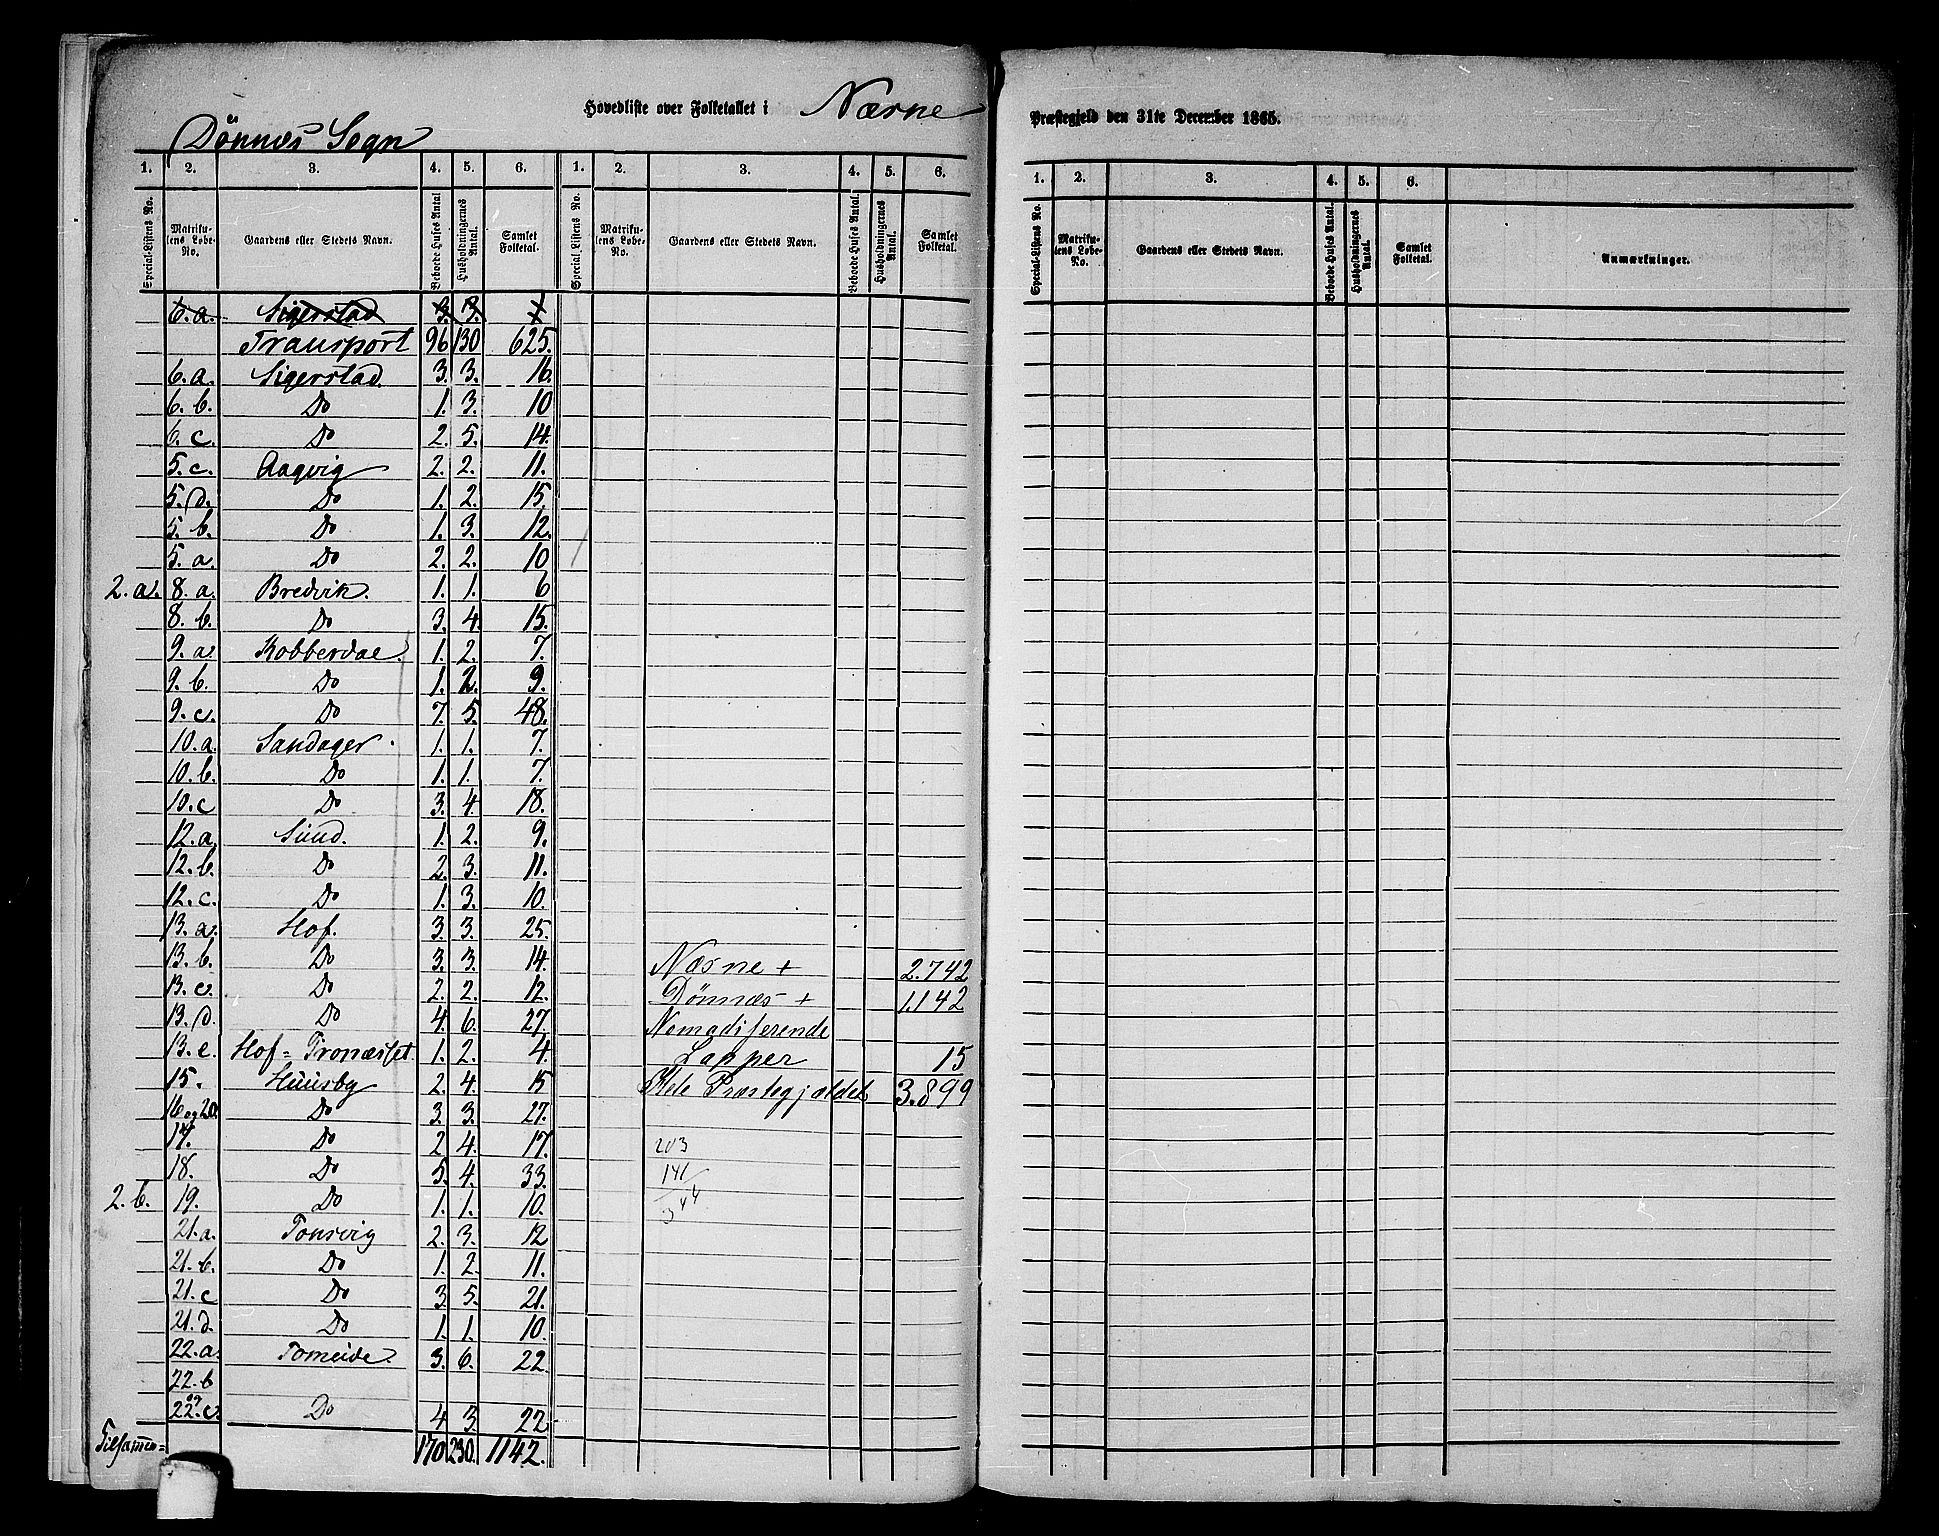 Hovedliste over Folketallet i Næsne Præstegjeld den 31te December 1865.
Dönnæs Sogn
1. 2. 3. 4. 5. 6. 1. 2. 3. 4. 5. 6. 1. 2. 3. 4. 5. 6.
Special-Listens No. Matrikulens Løbe-No. Gaardens eller Stedets Navn. Beboede Huses Antal Husholdningernes Antal. Samlet Folketal. Special Listens No. Matrikulens Løbe-No. Gaardens eller Stedets Navn. Beboede Huses Antal. Husholdningernes Antal. Samlet Folketal. Special-Listens No. Matrikulens Løbe-No. Gaardens eller Stedets Navn. Beboede Huses Antal. Husholdningernes Antal. Samlet Folketal. Anmærkninger.
6.a. Sigerstad 3. 3.
Transport 96 130 625.
6.a. Sigerstad 3. 3. 16
6.b. Do 1. 3. 10
6.c. Do 2. 5. 14.
5.c. Aagvig 2. 2. 11.
5.d. Do 1. 2. 15.
5.b. Do 1. 3. 12.
5.a. Do 2. 2. 10
2.a. 8.a. Bredvik. 1. 1. 6
8.b. Do 3. 4. 15.
9.a. Kobberdal. 1. 2. 7.
9.b. Do 1. 2. 9.
9.c. Do 7. 5. 48.
10.a. Sandager. 1. 1. 7.
10.b. Do 1. 1. 7.
10.c Do 3. 4 18.
12.a. Sund. 1. 2. 9.
12.b. Do 2. 3. 11.
12.c. Do 1. 3. 10.
13.a. Hof. 3. 3. 25.
13.b. Do 3. 3. 14. Næsne + 2.742
13.c. Do 2. 2. 12. Dönnæs + 1.142
13.d. Do 4. 6. 27. Nomadiserende
13.e. Hof= Tronæsset. 1. 2. 4. Lapper 15
15. Huusby 2. 4. 15 Hele Præstegjældet 3.899
16 og 20. Do 3. 3. 27.
17. Do 2 4. 17. 203
18. Do 5. 4. 33. 141
2.b. 19. Do 1. 1. 10. 344
21.a. Tonsvig 2. 3. 12
21.b. Do 1. 2. 11.
21.c Do 3. 5. 21.
21.d. Do 1. 1. 10.
22.a. Tomeide. 3. 6. 22
22.b
og
22.c. Do 4 3. 22
Tilsamen= 170 230. 1142.